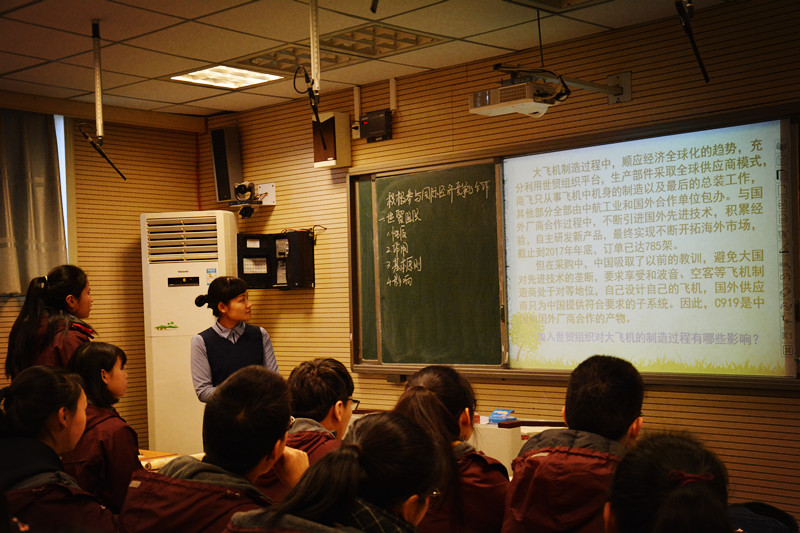 积极参与国际经济贸易的
一.世贸组织
1.
2.作用
3.基本原则
4.影响
大飞机制造过程中，顺应经济全球化的趋势，充
分利用世贸组织平台，生产部件采取全球供应商模式，
商飞只从事飞机中机身的制造以及最后的总装工作，
其他部分全部由中航工业和国外合作单位包办。与国
外厂商合作过程中，不断引进国外先进技术，积累经
验，自主研发新产品，最终实现不断开拓海外市场，
截止到2017年年底，订单已达785架。
但在采购中，中国吸取了以前的教训，避免大国
对先进技术的垄断，要求享受和波音、空客等飞机制
造商处于对等地位，自己设计自己的飞机，国外供应
商只为中国提供符合要求的子系统。因此，C919是中
国外厂商合作的产物。
入世贸组织对大飞机的制造过程有哪些影响？